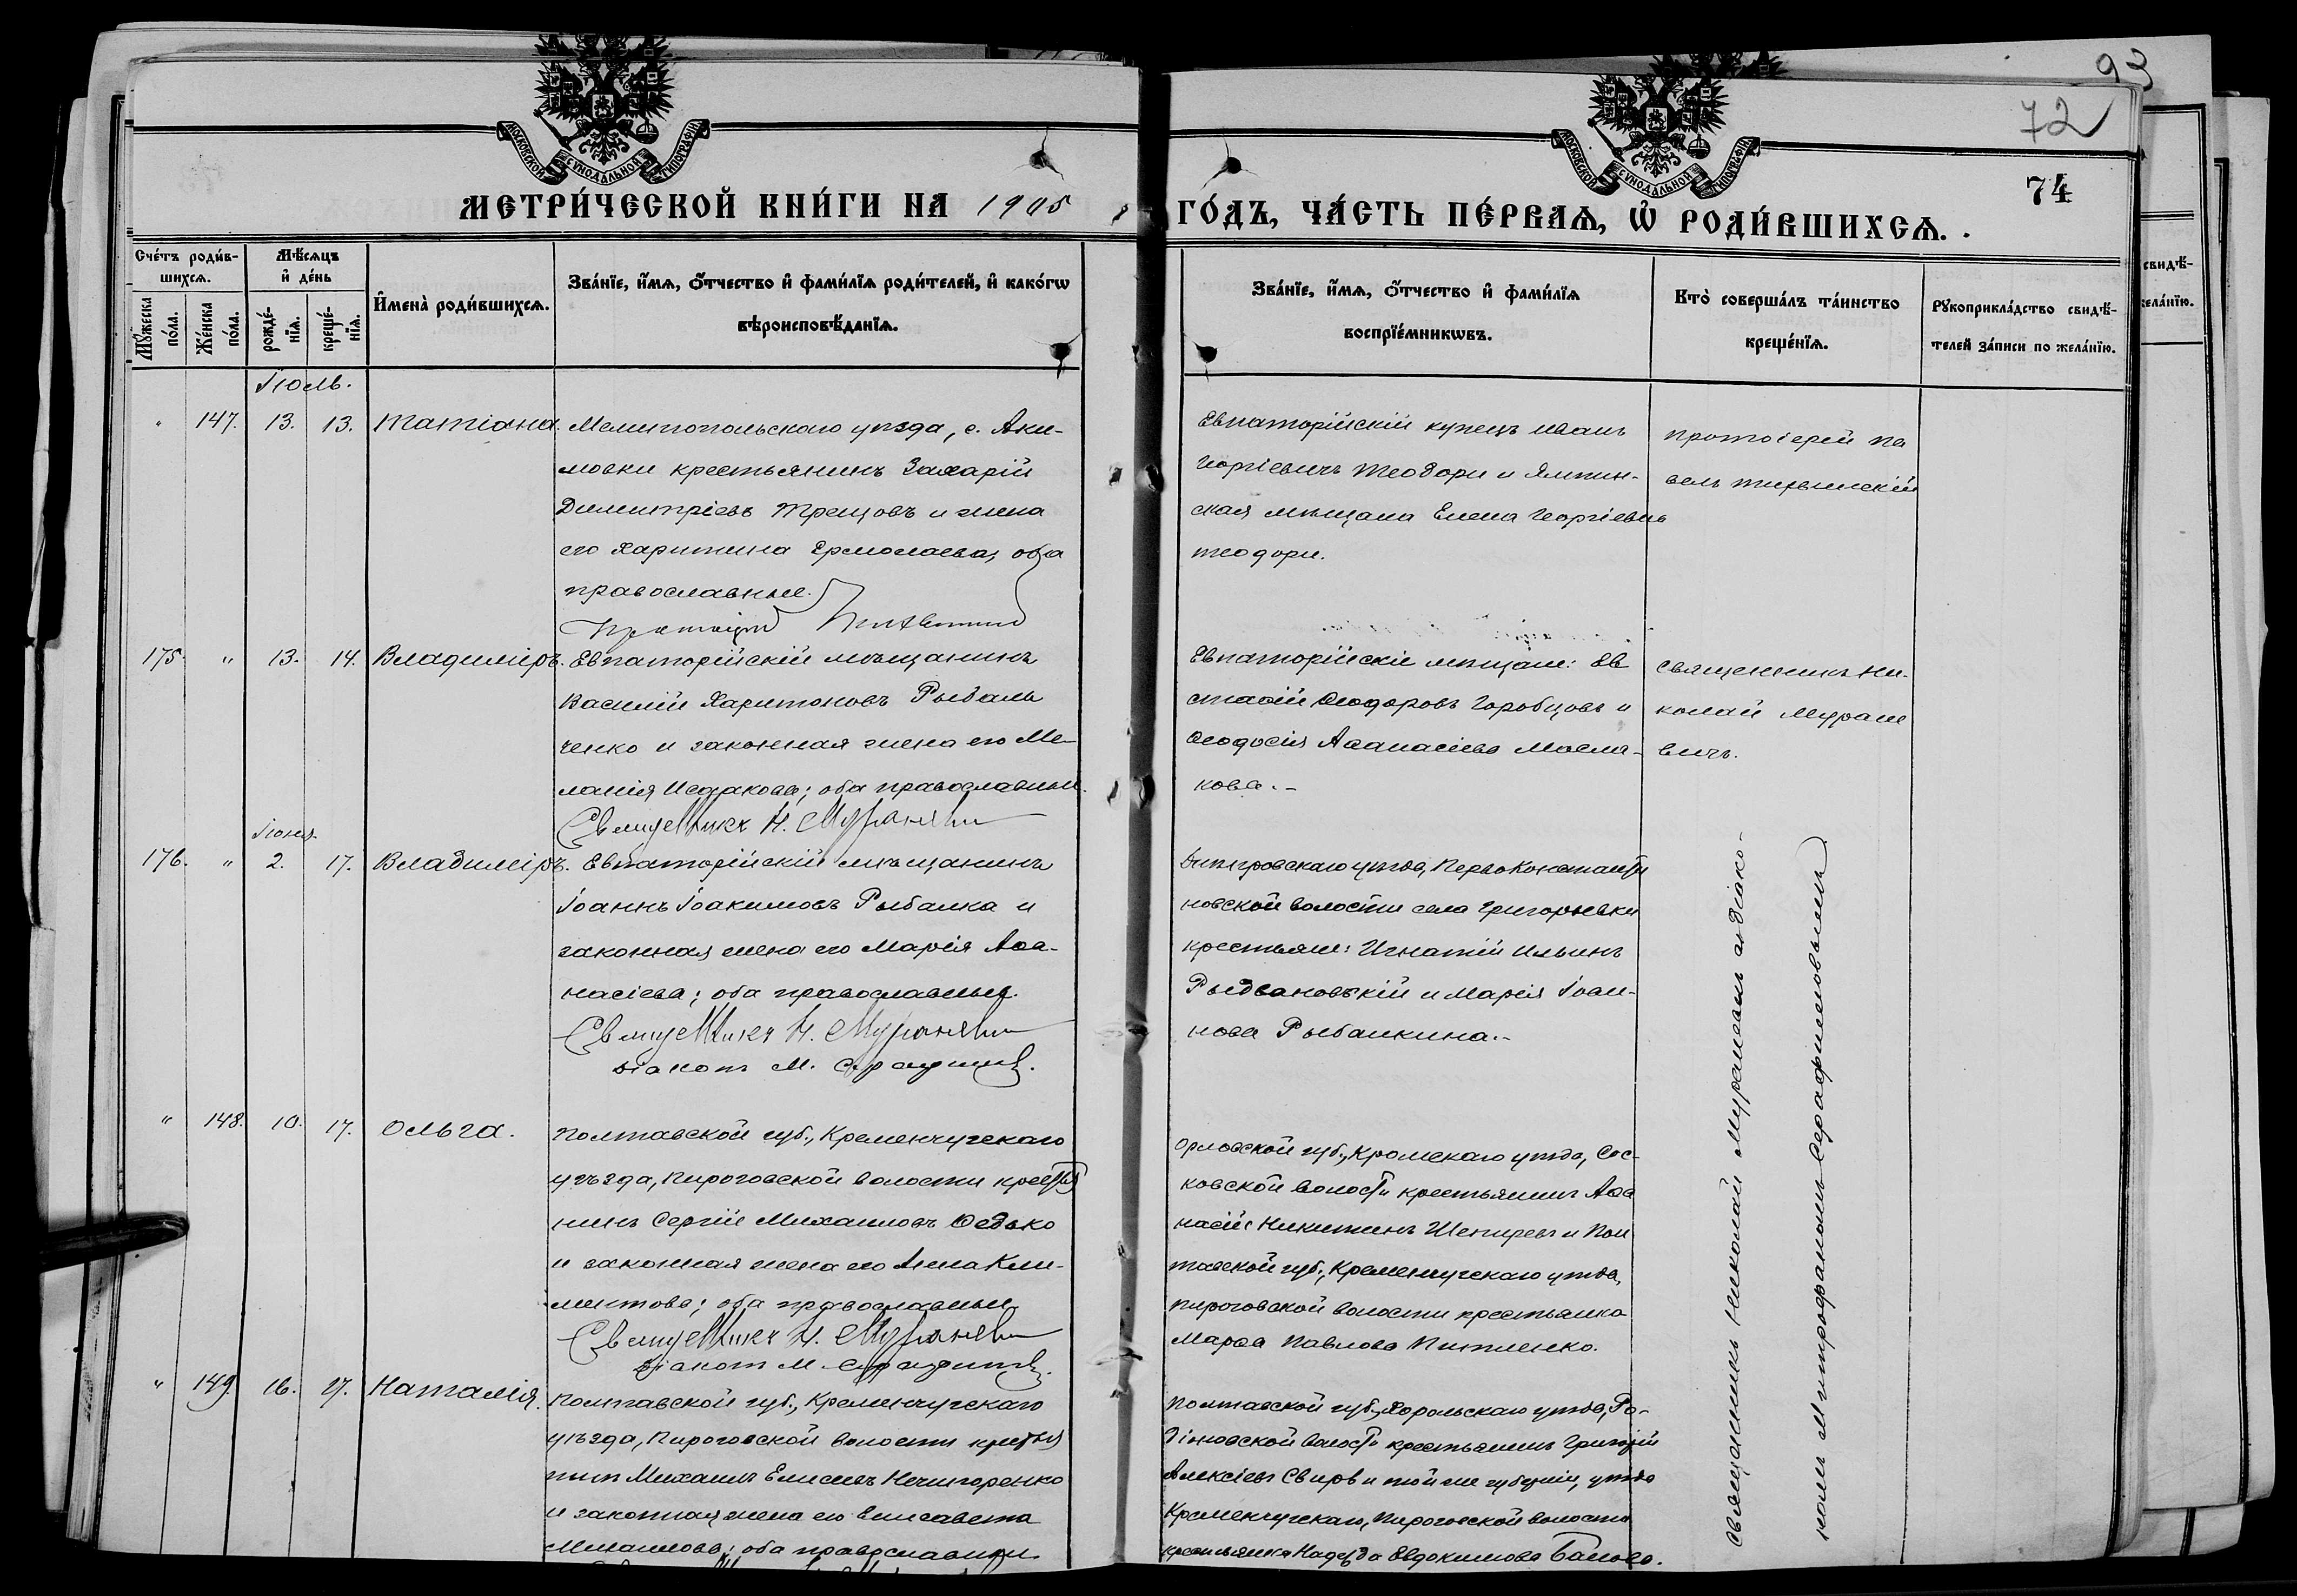 93
72
74
МОСКОВСКОЙ СѴНОДАЛЬНОЙ ТИПОГРАФІИ
МОСКОВСКОЙ СѴНОДАЛЬНОЙ ТИПОГРАФІИ
МЕТРИ́ЧЕСКОЙ КНИ́ГИ НА 1905
ГО́ДЪ, ЧА́СТЬ ПЕ́РВАѦ, Ѡ҆ РОДИ́ВШИХСѦ.
Сче́тъ роди́в-
шихсѧ.
Мꙋ́жеска по́ла.
Же́нска по́ла.
Мѣ́сѧцъ
и҆ де́нь
рожде́-
нїѧ.
креще́-
нїѧ.
И҆мена̀ роди́вшихсѧ.
Зва́нїе, и҆́мѧ, ѻ҆́тчество и҆ фами́лїѧ роди́телей, и҆ како́гѡ
вѣроисповѣ́данїѧ.
Зва́нїе, и҆́мѧ, ѻ҆́тчество и҆ фами́лїѧ
воспрїе́мникѡвъ.
Кто̀ соверша́лъ та́инство
креще́нїѧ.
Рꙋкоприкла́дство свидѣ́-
телей за́писи по жела́нїю.
свидѣ́-
жела́нїю.
Іюль.
" 147. 13. 13. Татіана.
Мелитопольскаго уѣзда, с. Аки-
мовки крестьянинъ Захарій
Димитріевъ Трещовъ и жена
его Харитина Ермолаева, оба
православные.
Протоіерей
Евпаторійскій купецъ Иванъ
Георгіевичъ Теодори и Ялтин-
ская мѣщанка Елена Георгіевна
Теодори.
Протоіерей Па
велъ
175. " 13. 14. Владиміръ.
Евпаторійскій мѣщанинъ
Василій Харитоновъ Рыбаль
ченко и законная жена его Ме-
ланія Исаакова; оба православные.
Священникъ Н. Мураневич
Евпаторійскіе мѣщане: Ев
стафій Ѳеодоровъ Горобцовъ и
Ѳеодосія Аѳанасіева Масла-
кова.-
Священникъ Ни-
колай Муране
вичъ.
Іюня.
176. " 2. 17. Владиміръ.
Евпаторійскій мѣщанинъ
Іоаннъ Іоакимовъ Рыбалка и
законная жена его Марія Аѳа-
насіева; оба православные.
Священникъ Н. Мураневич
Діаконъ М.
Днѣпровскаго уѣзда, Первоконстанти
новской волости села Григорьевки
крестьяне: Игнатій Ильинъ
Рыдвановскій и Марія Іоан-
нова Рыбалкина.-
" 148. 10. 17. Ольга.
Полтавской губ., Кременчугскаго
уѣзда, Пироговской волости крестья
нинъ Сергій Михаиловъ Федько
и законная жена его Анна Кли-
ментова; оба православные
Священникъ Н. Мураневич
Діаконъ М.
Орловской губ., Кромскаго уѣзда, Сос-
ковской волости крестьянинъ Аѳа
насій Никитинъ Шепиревъ и Пол
тавской губ., Кременчугскаго уѣзда,
Пироговской волости крестьянка
Марѳа Павлова Питленко.
" 149. 16. 27. Наталія.
Полтавской губ., Кременчугскаго
уѣзда, Пироговской волости крестья
нинъ Михаилъ Елисеевъ Нечипоренко
и законная жена его Елисавета
Михаилова; оба православные
Полтавской губ., Хорольскаго уѣзда, Ро-
діновской волости крестьянинъ Григорій
Алексіевъ Свирь и той же губерніи, уѣзда
Кременчугскаго, Пироговской волости
крестьянка Надежда Евдокимова Балова.
Священникъ Николай Мураневичъ съ діако-
номъ Митрофаномъ Серафимовымъ